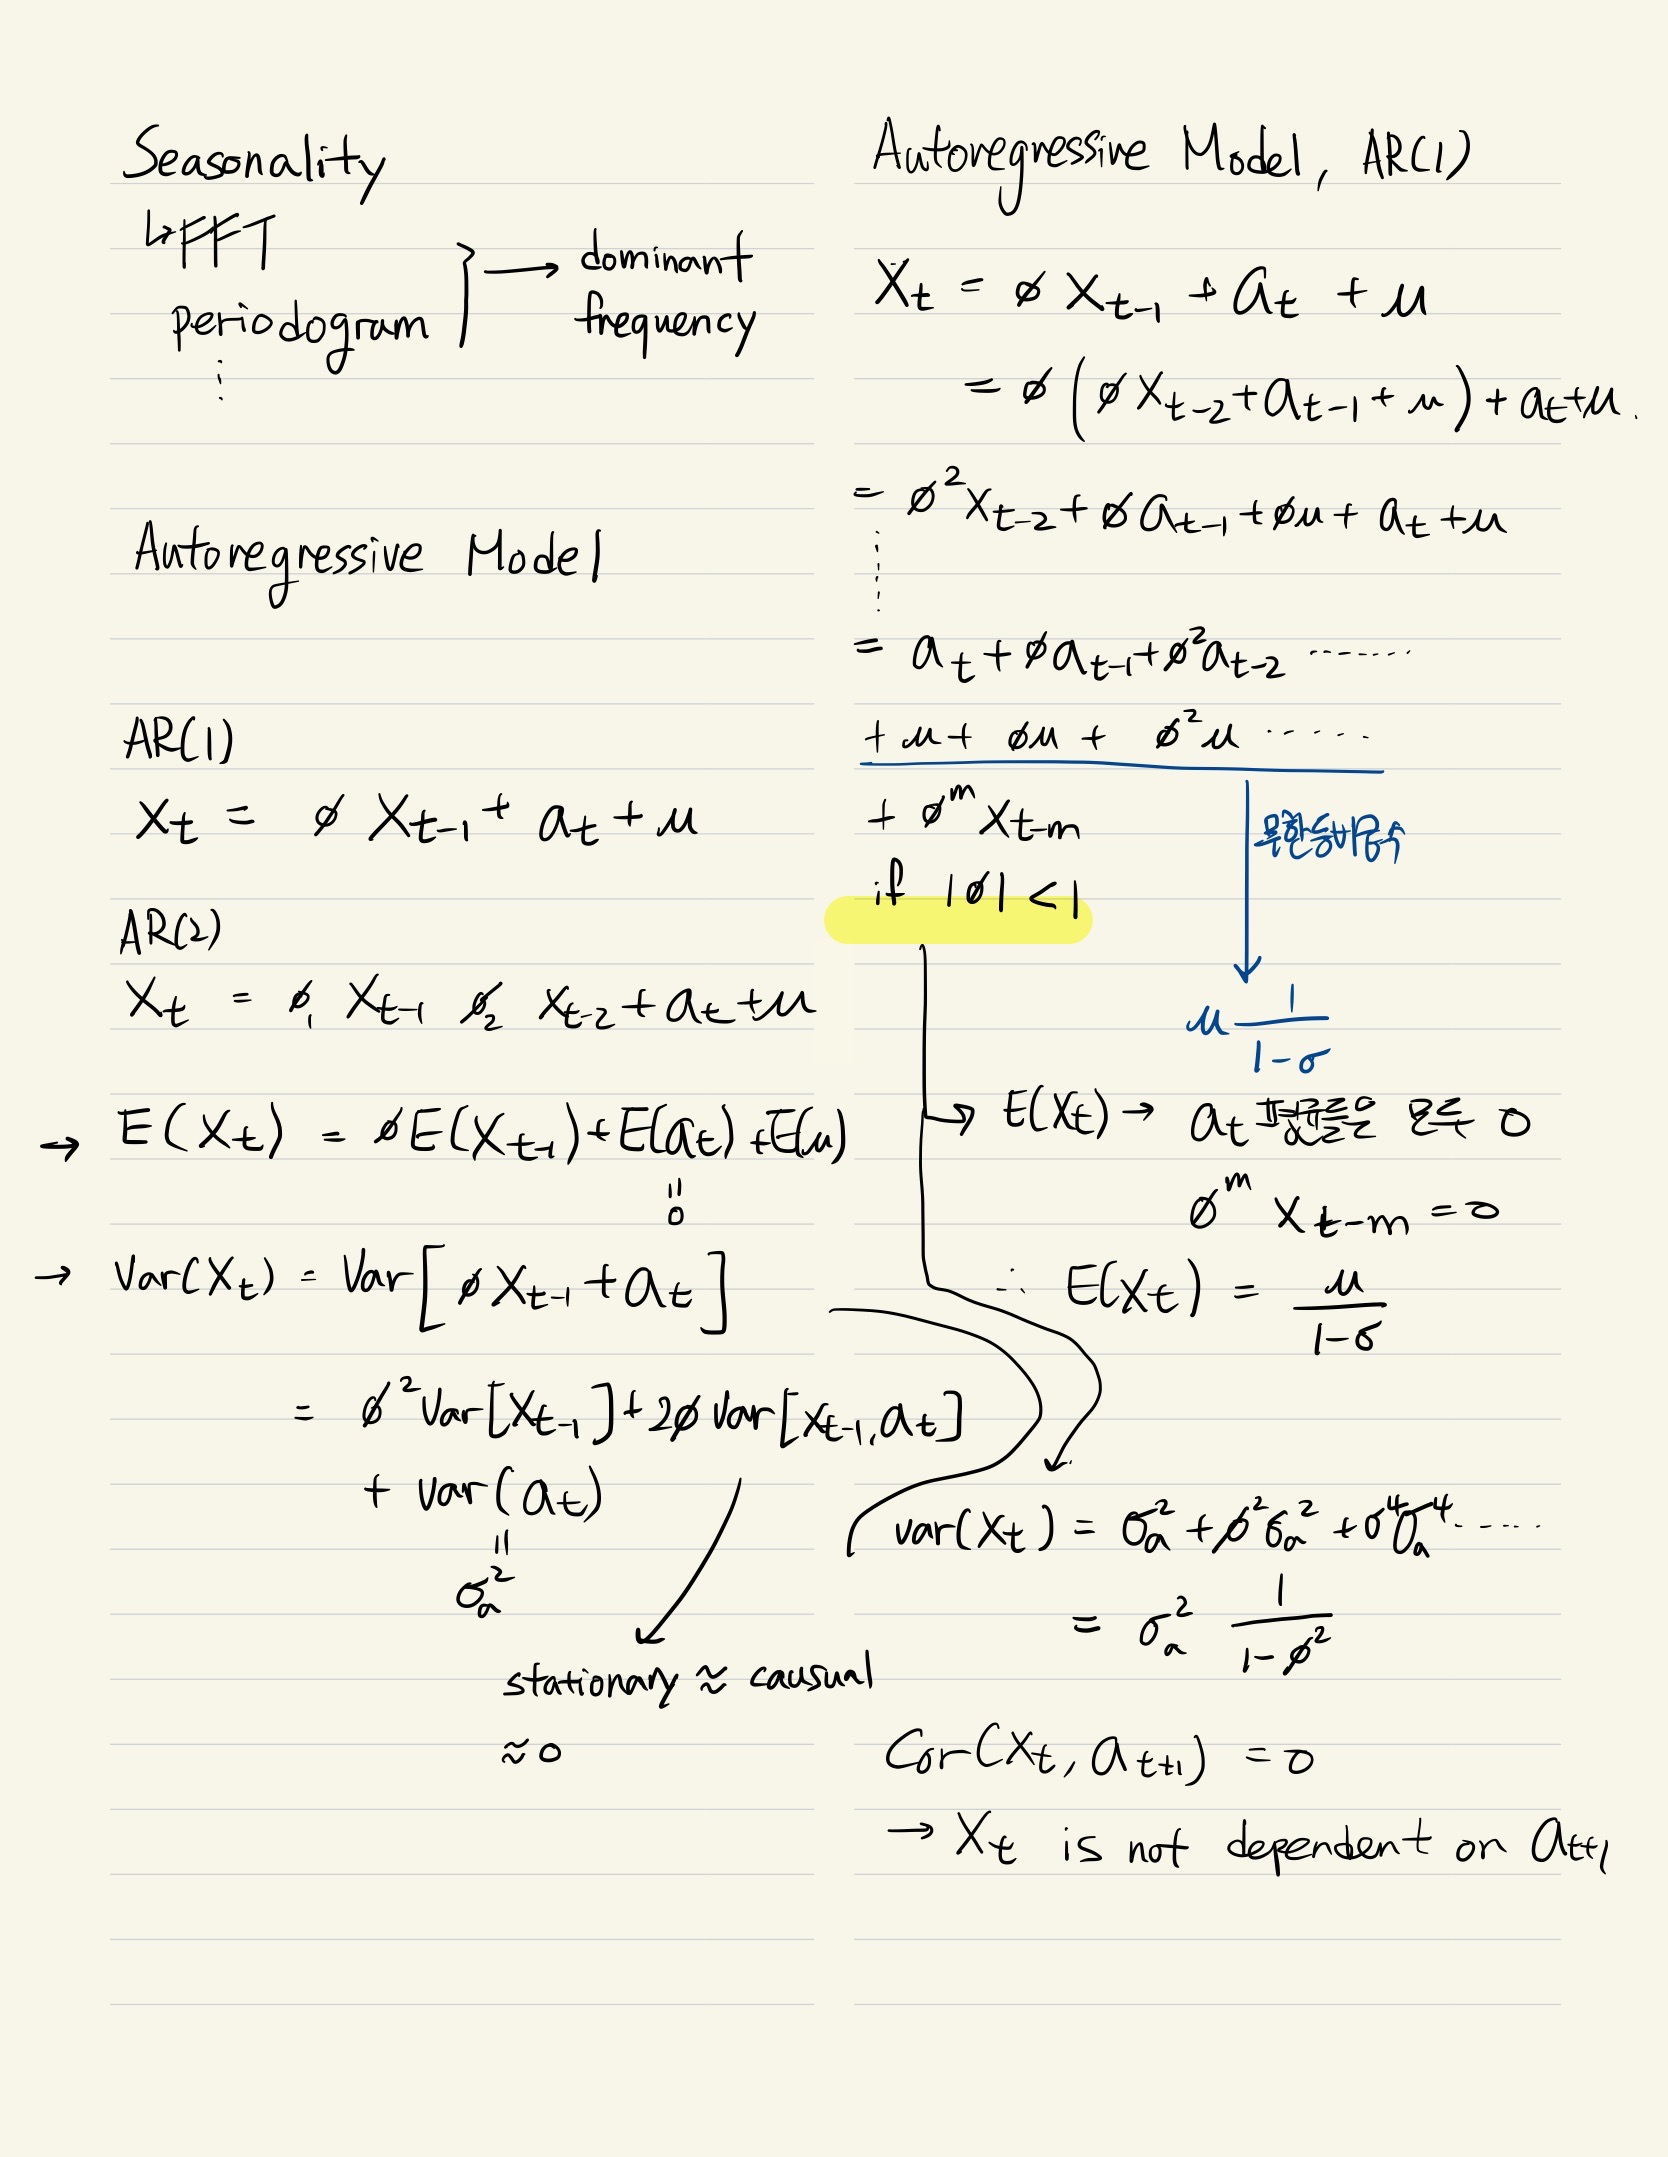 Seasonality
↳ FFT
periodogram
⋮
} → dominant
frequency
Autoregressive Model
AR(1)
X_t = ø X_{t-1} + a_t + μ
AR(2)
X_t = ø_1 X_{t-1} ø_2 X_{t-2} + a_t + μ
→ E(X_t) = øE(X_{t-1}) + E(a_t) + E(μ)
=
0
→ Var(X_t) = Var[ø X_{t-1} + a_t]
= ø² Var[X_{t-1}] + 2ø Var[X_{t-1}, a_t]
+ Var(a_t)
=
σ_a²
stationary ≈ causual
≈ 0
Autoregressive Model, AR(1)
X_t = ø X_{t-1} + a_t + μ
= ø (ø X_{t-2} + a_{t-1} + μ) + a_t + μ.
= ø² X_{t-2} + ø a_{t-1} + øμ + a_t + μ
⋮
= a_t + ø a_{t-1} + ø² a_{t-2} ·······
+ μ + øμ + ø² μ ·····
+ ø^m X_{t-m}
무한등비급수
if |ø| < 1
μ 1/(1-σ)
→ E(X_t) → a_t 평균들은 모두 0
ø^m X_{t-m} = 0
∴ E(X_t) = μ/(1-σ)
var(X_t) = σ_a² + ø² σ_a² + σ⁴ σ_a⁴ ·····
= σ_a² 1/(1-ø²)
Cor(X_t, a_{t+1}) = 0
→ X_t is not dependent on a_{t+1}